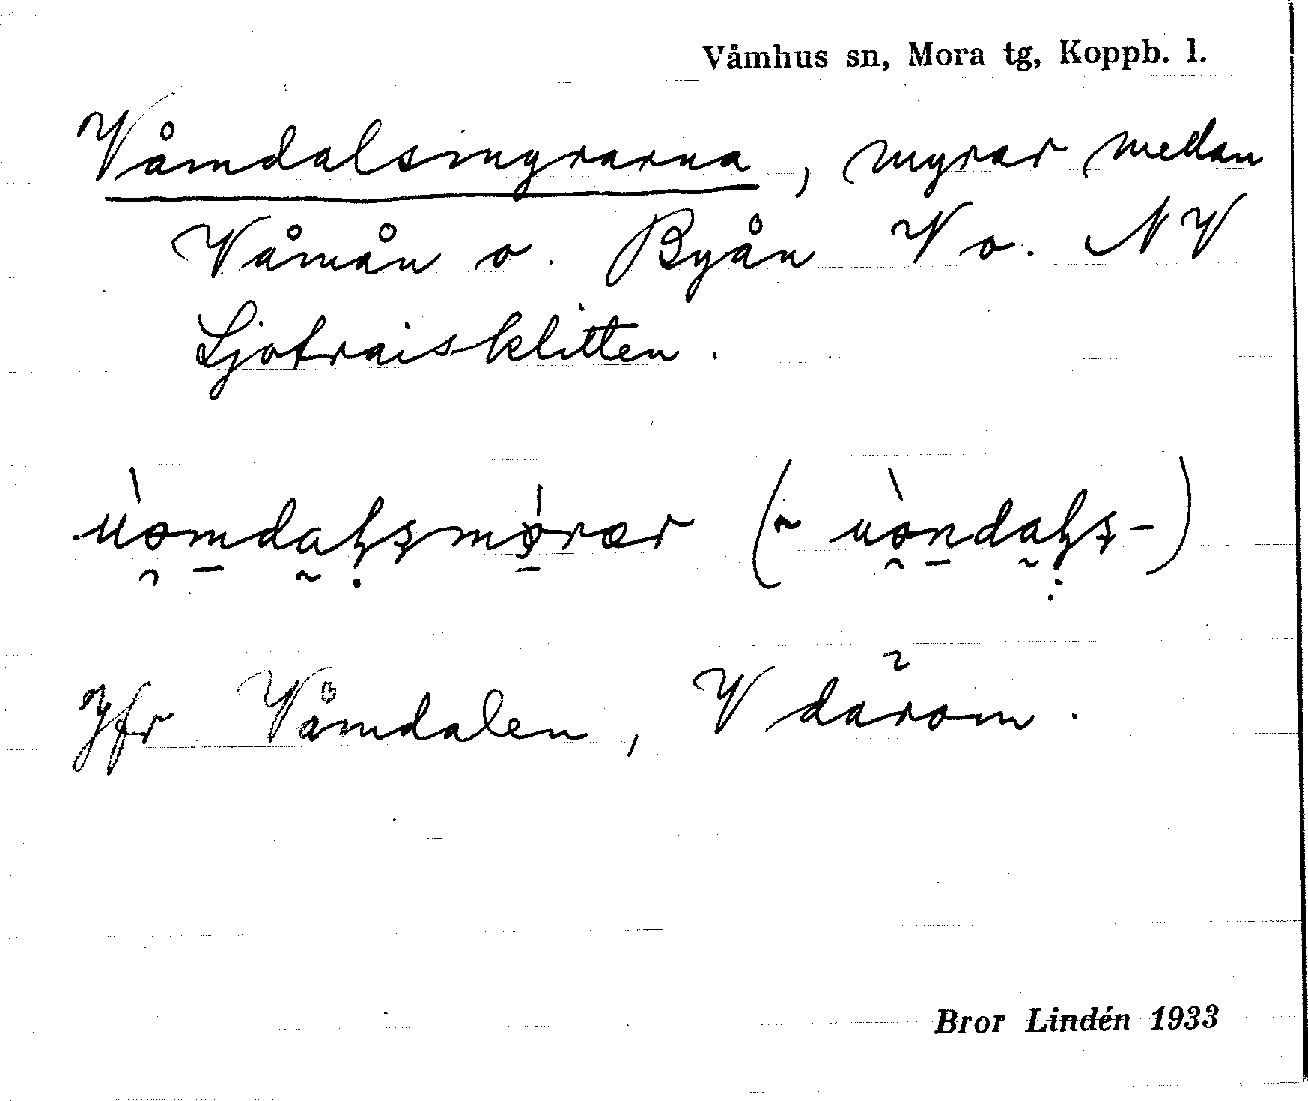 Våmhus sn, Mora tg, Koppb. l.
Våmdalsmyrarna, myrar mellan
Våmån o. Byån V o. NV
Ljotraisklitten.
Jfr Våmdalen, V därom.
Bror Lindén 1933